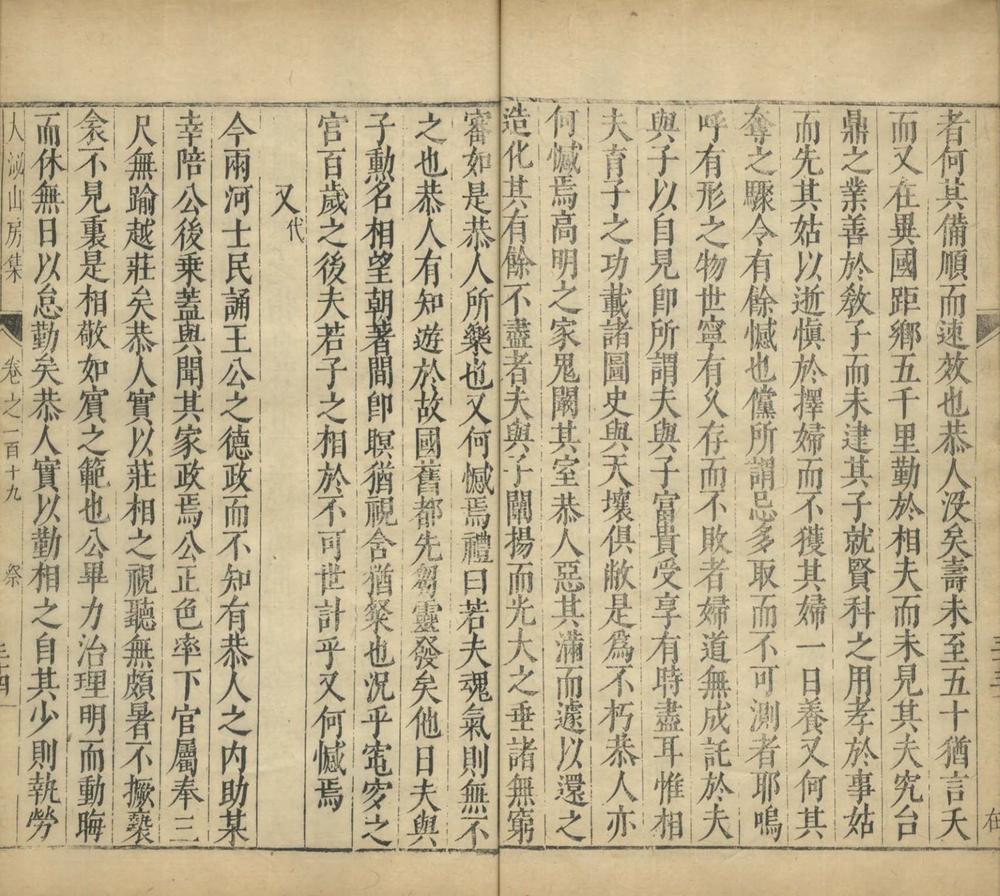 者何其備順而速效也恭人沒矣壽未至五十猶言夭
而又在異國距鄉五千里勤於相夫而未見其夫究台
鼎之業善於敎子而未逮其子就賢科之用孝於事姑
而先其姑以逝愼於擇婦而不獲其婦一日養又何其
奪之驟令有餘憾也儻所謂忌多取而不可測者耶嗚
呼有形之物世寧有久存而不敗者婦道無成託於夫
與子以自見卽所謂夫與子富貴受享有時盡耳惟相
夫育子之功載諸圖史與天壤俱敝是爲不朽恭人亦
何憾焉高明之家鬼闞其室恭人惡其滿而遽以還之
造化其有餘不盡者夫與子闡揚而光大之垂諸無窮
審如是恭人所樂也又何憾焉禮曰若夫魂氣則無不
之也恭人有知遊於故國舊都先芻靈發矣他日夫與
子勳名相望朝著間卽瞑猶視含猶粲也況乎窀穸之
官百歲之後夫若子之相於不可世計乎又何憾焉
又代
今兩河士民誦王公之德政而不知有恭人之內助某
幸陪公後乘蓋與聞其家政焉公正色率下官屬奉三
尺無踰越莊矣恭人實以莊相之視聽無頗暑不撅褻
衾不見裏是相敬如賓之範也公畢力治理明而動晦
而休無日以怠勤矣恭人實以勤相之自其少則執勞
大泌山房集 卷之一百十九 祭 三十四